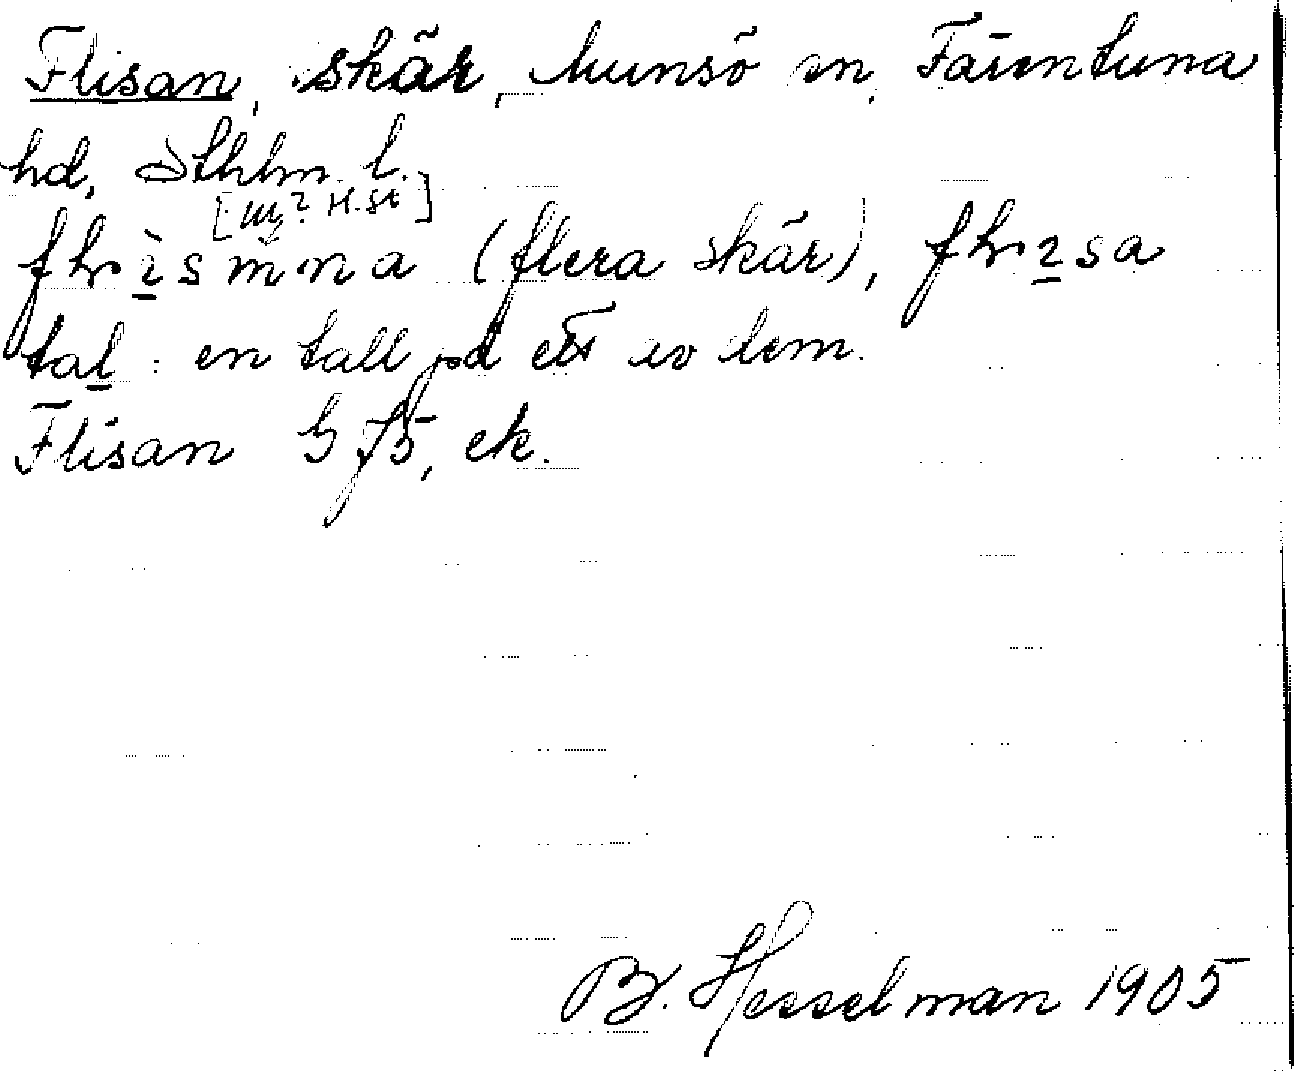 Flisan, skär, Munsö sn, Färentuna
hd, Sthlm. l.
(flera skär),
tal : en tall på ett av dem.
Flisan G f5, ek.
B. Hesselman 1905